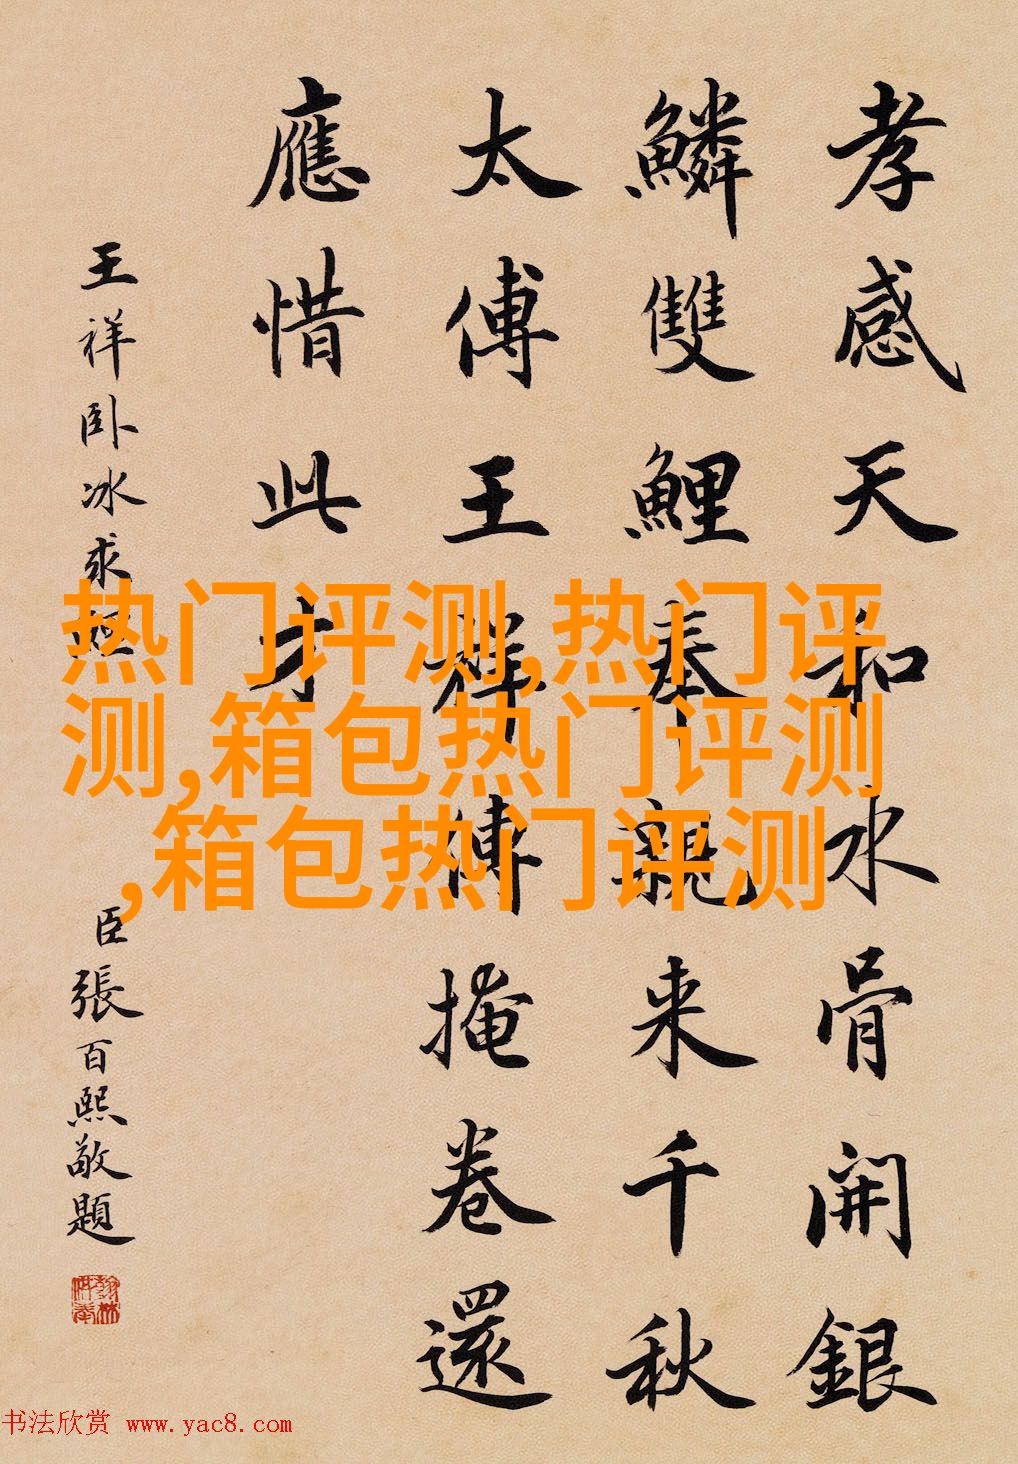 孝感天和水骨開銀
鱗雙鯉奉親来千秋
太傅王祥傳掩卷還
應惜此才
王祥卧冰求鯉
臣張百熙敬題
翰林供奉
热门评测,热门评
测,箱包热门评测
,箱包热门评测
书法欣赏 www.yac8.com